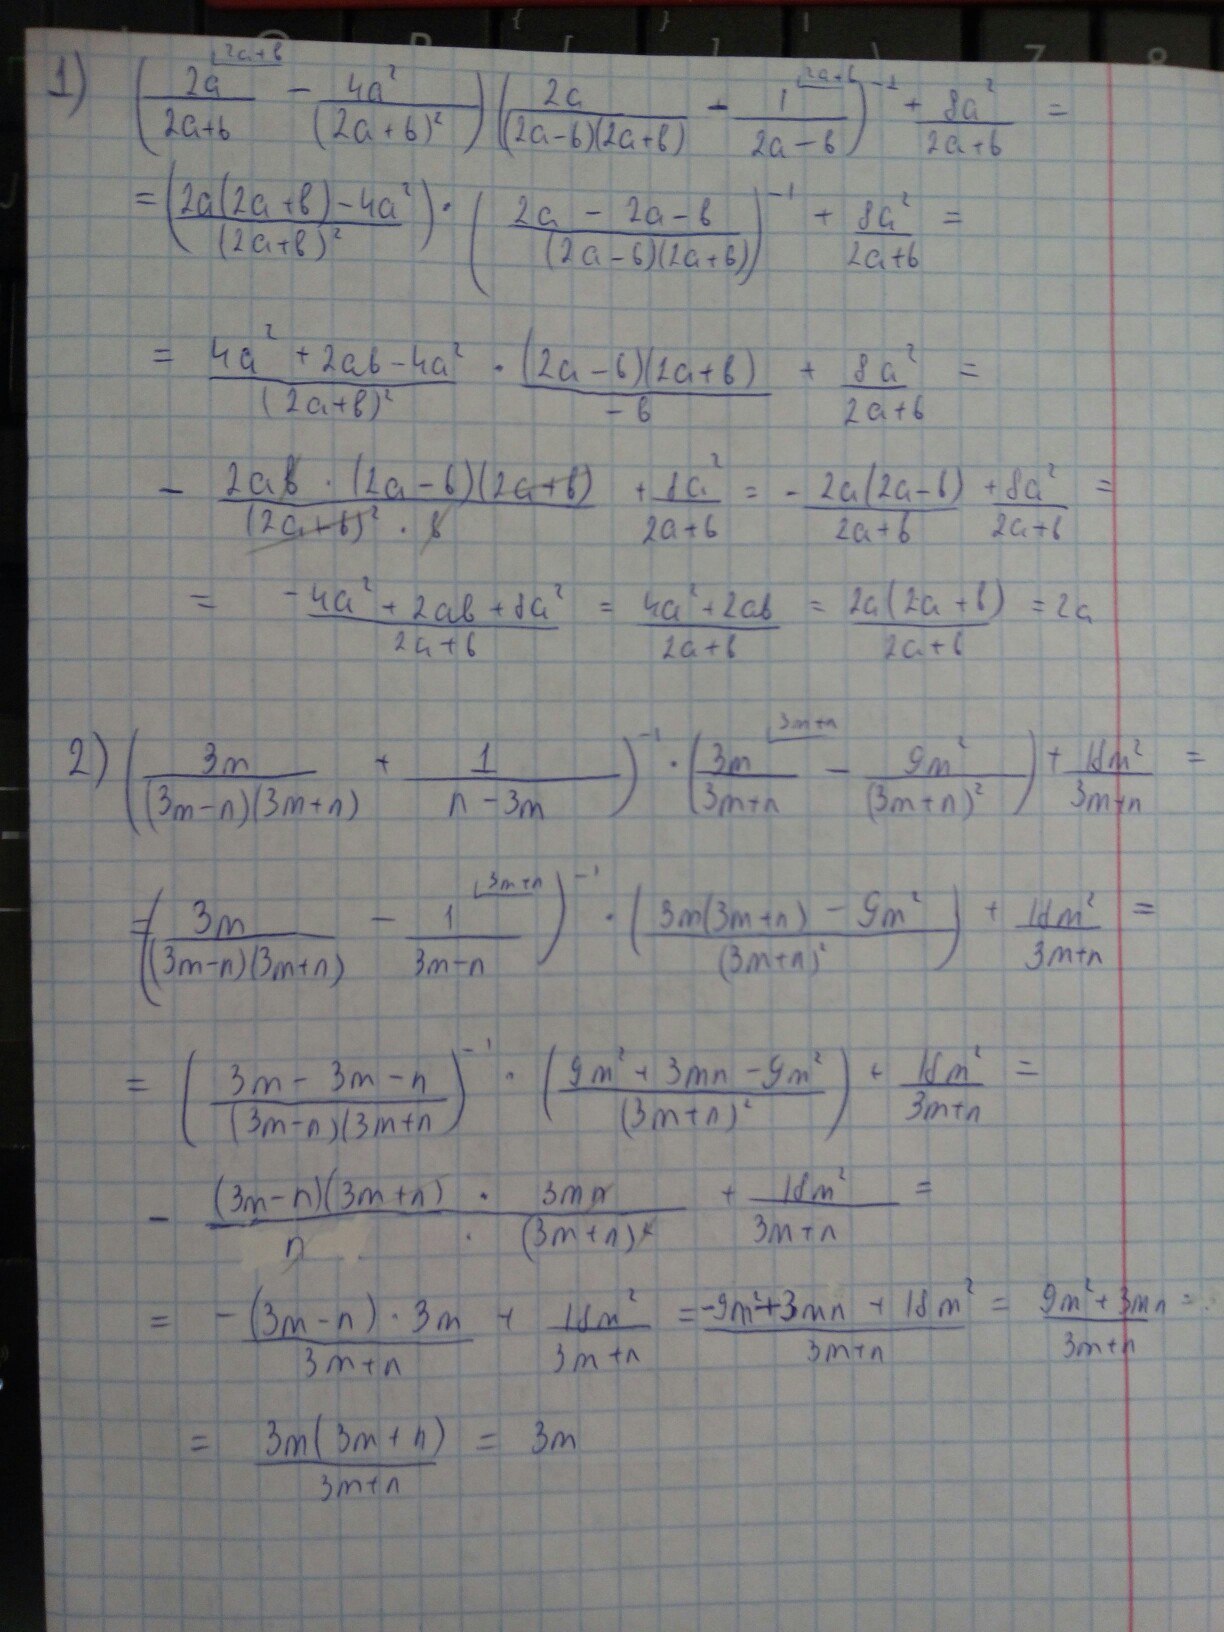 1) (2a/(2a+b) [2a+b] - 4a²/(2a+b)²) (2a/((2a-b)(2a+b)) - 1/(2a-b) [2a+b])⁻¹ + 8a²/(2a+b) =
= ((2a(2a+b)-4a²)/(2a+b)²) · ((2a - 2a - b)/((2a-b)(2a+b)))⁻¹ + 8a²/(2a+b) =
= (4a² + 2ab - 4a²)/(2a+b)² · ((2a-b)(2a+b))/(-b) + 8a²/(2a+b) =
- (2ab · (2a-b)(2a+b))/((2a+b)² · b) + 8a²/(2a+b) = - 2a(2a-b)/(2a+b) + 8a²/(2a+b) =
= (-4a² + 2ab + 8a²)/(2a+b) = (4a² + 2ab)/(2a+b) = 2a(2a+b)/(2a+b) = 2a
2) (3m/((3m-n)(3m+n)) + 1/(n-3m))⁻¹ · (3m/(3m+n) [3m+n] - 9m²/(3m+n)²) + 18m²/(3m+n) =
= (3m/((3m-n)(3m+n)) - 1/(3m-n) [3m+n])⁻¹ · ((3m(3m+n) - 9m²)/(3m+n)²) + 18m²/(3m+n) =
= ((3m - 3m - n)/((3m-n)(3m+n))⁻¹ · ((9m² + 3mn - 9m²)/(3m+n)²) + 18m²/(3m+n) =
- ((3m-n)(3m+n) · 3mn)/(n · (3m+n)²) + 18m²/(3m+n) =
= -(3m-n) · 3m/(3m+n) + 18m²/(3m+n) = (-9m² + 3mn + 18m²)/(3m+n) = (9m² + 3mn)/(3m+n) =
= 3m(3m+n)/(3m+n) = 3m